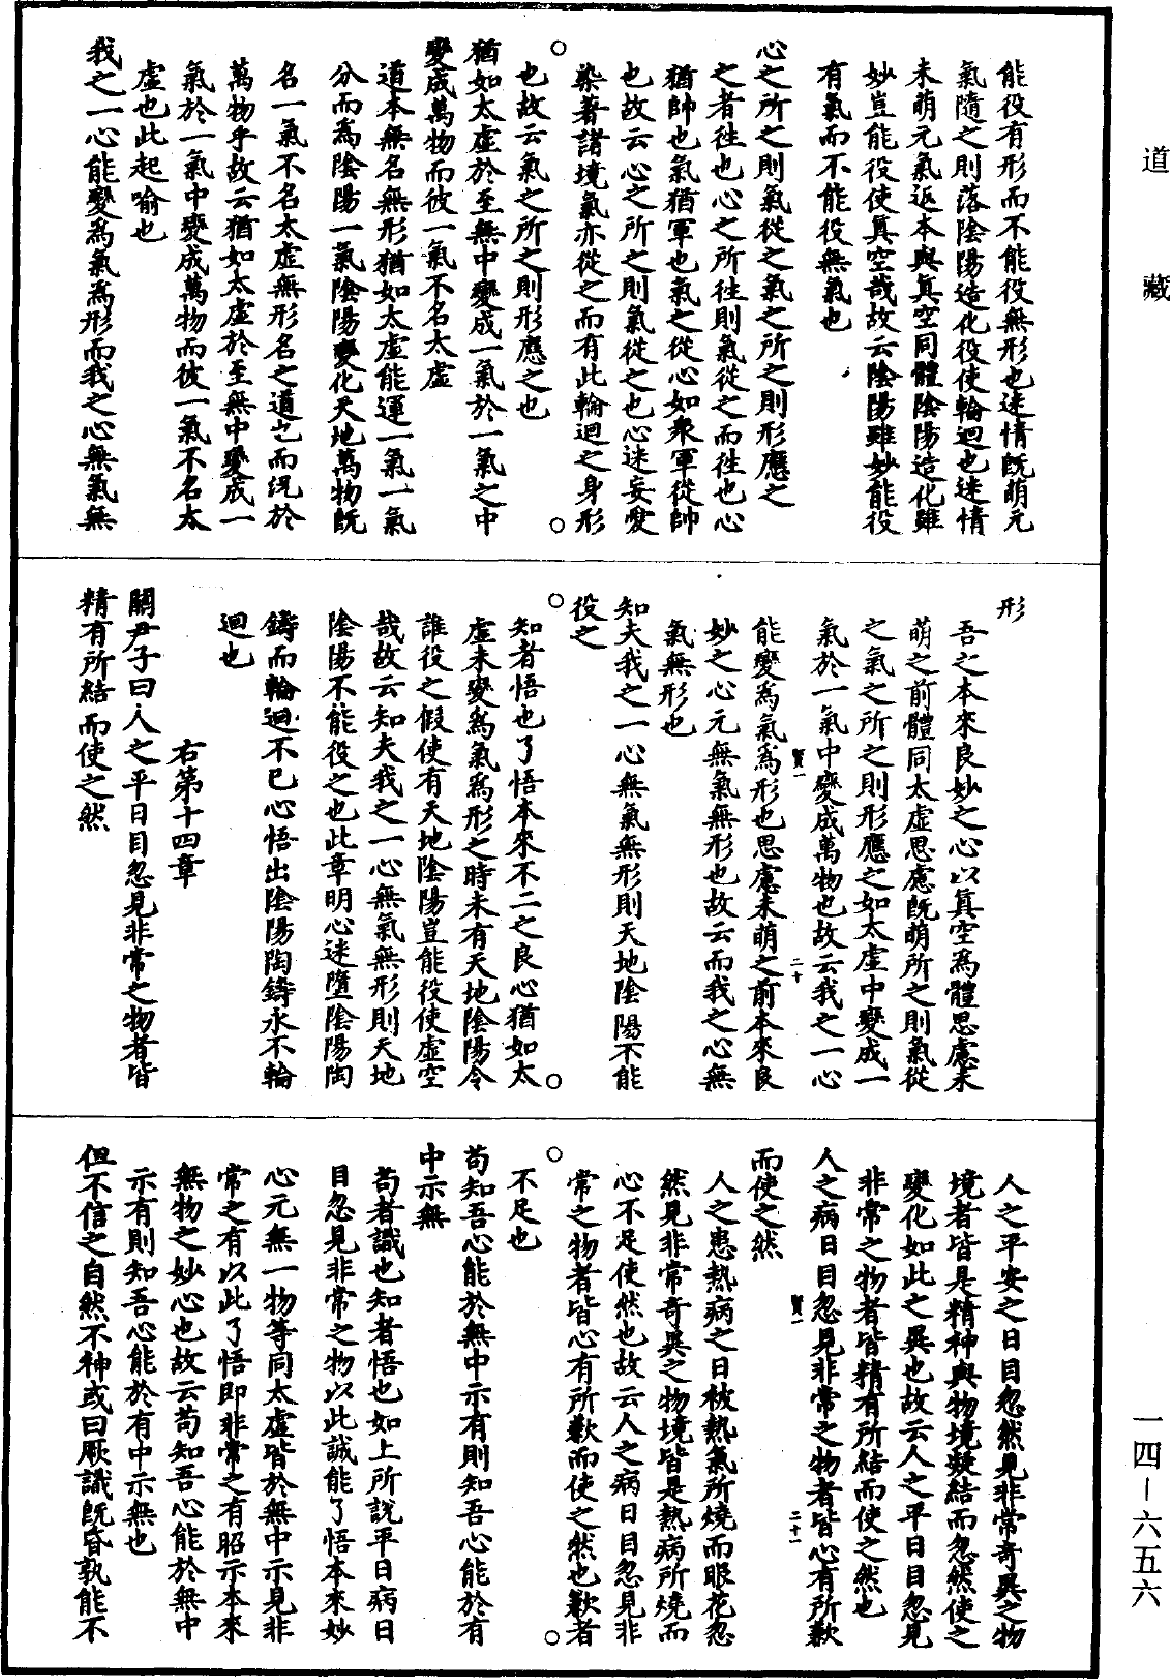 道藏
能役有形而不能役無形也迷情旣萌元
氣隨之則落陰陽造化役使輪迴也迷情
未萌元氣返本與真空同體陰陽造化雖
妙豈能役使真空哉故云陰陽雖妙能役
有氣而不能役無氣也
心之所之則氣從之氣之所之則形應之
之者徃也心之所徃則氣從之而徃也心
猶帥也氣猶軍也氣之從心如衆軍從帥
也故云心之所之則氣從之也心迷妄愛
染著諸境氣亦從之而有此輪迴之身形
○也故云氣之所之則形應之也○
猶如太虛於至無中變成一氣於一氣之中
變成萬物而彼一氣不名太虛
道本無名無形猶如太虛能運一氣一氣
分而爲陰陽一氣陰陽變化天地萬物旣
名一氣不名太虛無形名之道也而況於
萬物乎故云猶如太虛於至無中變成一
氣於一氣中變成萬物而彼一氣不名太
虛也此起喻也
我之一心能變爲氣爲形而我之心無氣無
形
吾之本來良妙之心以真空爲體思慮未
萌之前體同太虛思慮旣萌所之則氣從
之氣之所之則形應之如太虛中變成一
氣於一氣中變成萬物也故云我之一心
賢一
二十
能變爲氣爲形也思慮未萌之前本來良
妙之心元無氣無形也故云而我之心無
氣無形也
知夫我之一心無氣無形則天地陰陽不能
役之
○知者悟也了悟本來不二之良心猶如太○
虛未變爲氣爲形之時未有天地陰陽令
誰役之假使有天地陰陽豈能役使虛空
哉故云知夫我之一心無氣無形則天地
陰陽不能役之也此章明心迷墮陰陽陶
鑄而輪迴不已心悟出陰陽陶鑄永不輪
迴也
右第十四章
關尹子曰人之平日目忽見非常之物者皆
精有所結而使之然
人之平安之日目忽然見非常奇異之物
境者皆是精神與物境凝結而忽然使之
變化如此之異也故云人之平日目忽見
非常之物者皆精有所結而使之然也
人之病日目忽見非常之物者皆心有所歉
賢一
二十一
而使之然
人之患熱病之日被熱氣所燒而眼花忽
然見非常奇異之物境皆是熱病所燒而
心不足使然也故云人之病日目忽見非
常之物者皆心有所歉而使之然也歉者
○不足也○
苟知吾心能於無中示有則知吾心能於有
中示無
苟者識也知者悟也如上所說平日病日
目忽見非常之物以此誠能了悟本來妙
心元無一物等同太虛皆於無中示見非
常之有以此了悟即非常之有昭示本來
無物之妙心也故云苟知吾心能於無中
示有則知吾心能於有中示無也
但不信之自然不神或曰厥識旣昏孰能不
一四—六五六